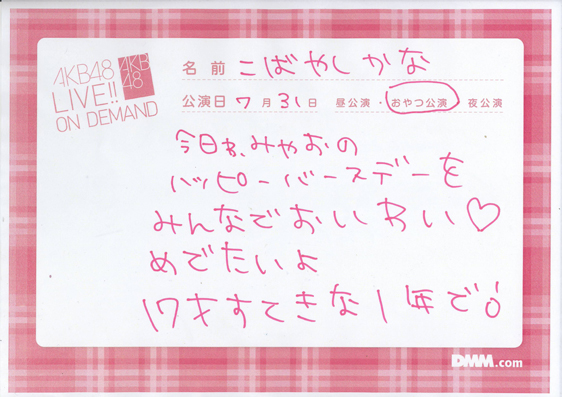 AKB48
LIVE!!
ON DEMAND
AKB
48
名前 こばやしかな
公演日 7月31日 昼公演・おやつ公演 夜公演
今日わ、みゃおの
ハッピーバースデーを
みんなでおいわい♡
めでたいよ
17才すてきな1年で
DMM.com